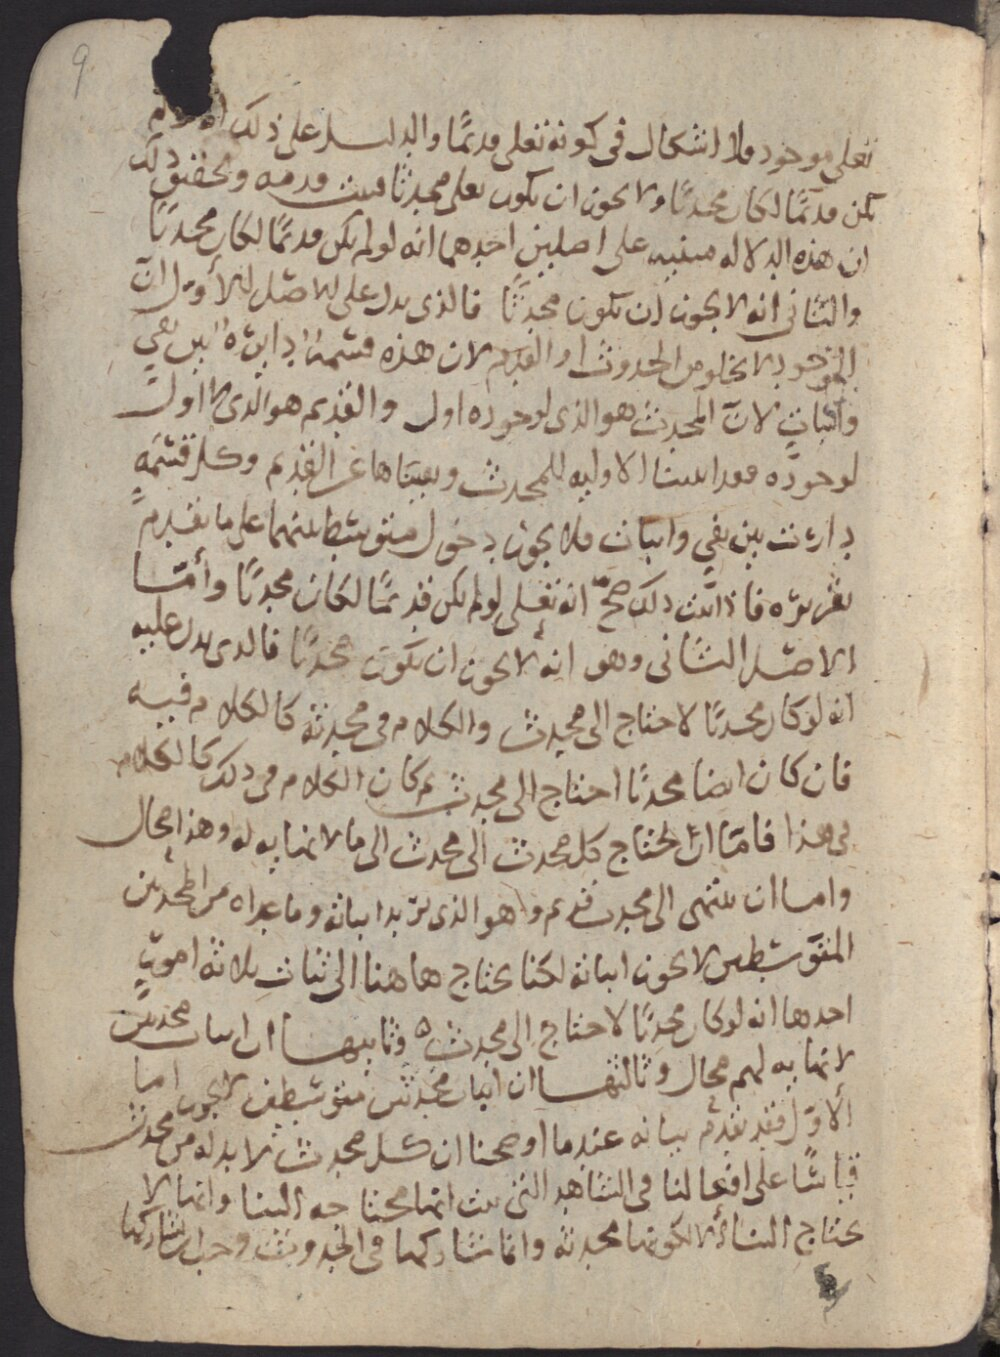 9
تعلى موجود فلا اشكال فى كونه تعلى قديمًا والدليل على ذلك انه لو لم
يكن قديمًا لكان محدثًا ولا يجوز ان يكون تعلى محدثا فثبت قدمه وتحقيق ذلك
ان هذه الدلاله مبنيه على اصلين احدهما انه لو لم يكن قديمًا لكان محدثًا
والثانى انه لا يجوز ان يكون محدثًا فالذى يدل على الاصل الأول ان
الموجود لا يخلو من الحدوث او القدم لان هذه قسمة دايرة بين نفي
واثبات لان المحدث هو الذى لوجوده اول والقديم هو الذى لا اول
لوجوده فقد اثبتنا الاوليه للمحدث ونفيناها عن القديم وكل قسمة
دارت بين نفي واثبات فلا يجوز دخول متوسط بينهما على ما تقدم
تقريره فاذا ثبت ذلك صحّ انه تعلى لو لم يكن قديمًا لكان محدثًا وأمّا
الاصل الثانى وهو انه لا يجوز ان يكون محدثًا فالذى يدل عليه
انه لو كان محدثًا لاحتاج الى محدث والكلام فى محدثه كالكلام فيه
فان كان ايضا محدثًا احتاج الى محدث ثم كان الكلام فى ذلك كالكلام
فى هذا فامّا ان يحتاج كل محدث الى محدث الى ما لا نهايه له وهذا محال
واما ان ينتهى الى محدث قديم وهو الذى نريد اثباته وما عداه من المحدثين
المتوسطين لا يجوز اثباته لكنا نحتاج هاهنا الى ثبات ثلاثه امور
احدها انه لو كان محدثًا لاحتاج الى محدث ه وثانيها ان اثبات محدثين
لا نهايه لهم محال وثالثها ان اثبات محدثين متوسطين لا يجوز اما
الأول فقد تقدم بيانه عندما اوضحنا ان كل محدث لا بد له من محدث
قياسًا على افعالنا فى الشاهد التى ثبت انها محتاجه الينا وانها لا
تحتاج الينا الا لكونها محدثه وان ما شاركها فى الحدوث وجب ان يشاركها